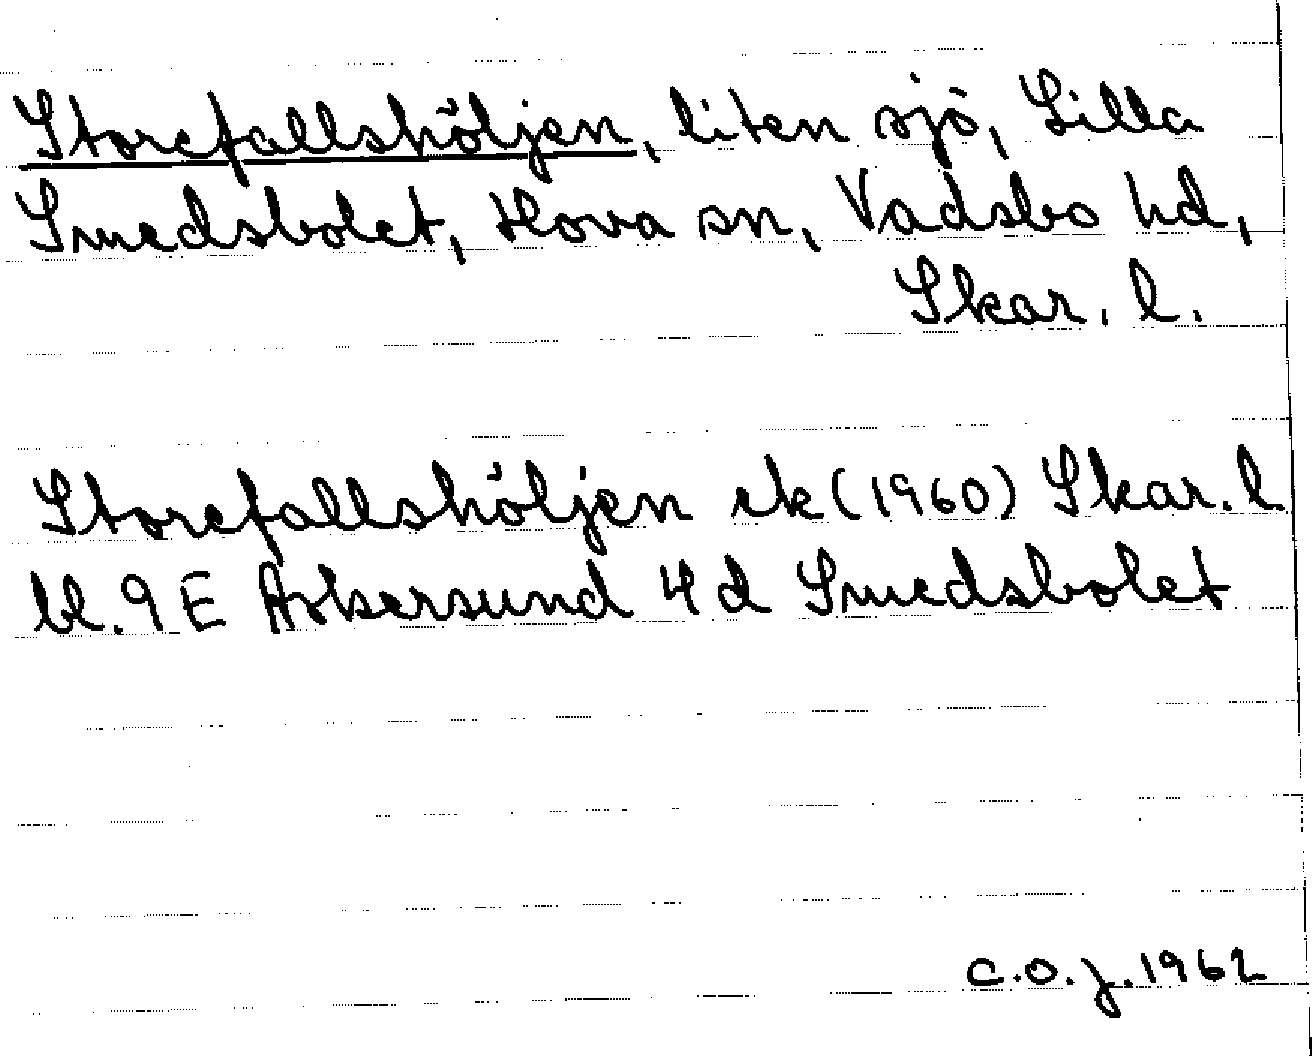 Storefallshöljen, liten sjö, Lilla
Smedsbolet, Hova sn, Vadsbo hd,
Skar. l.
Storefallshöljen ek (1960) Skar. l
bl. 9 E Askersund 4 d Smedsbolet
C.O.J. 1962